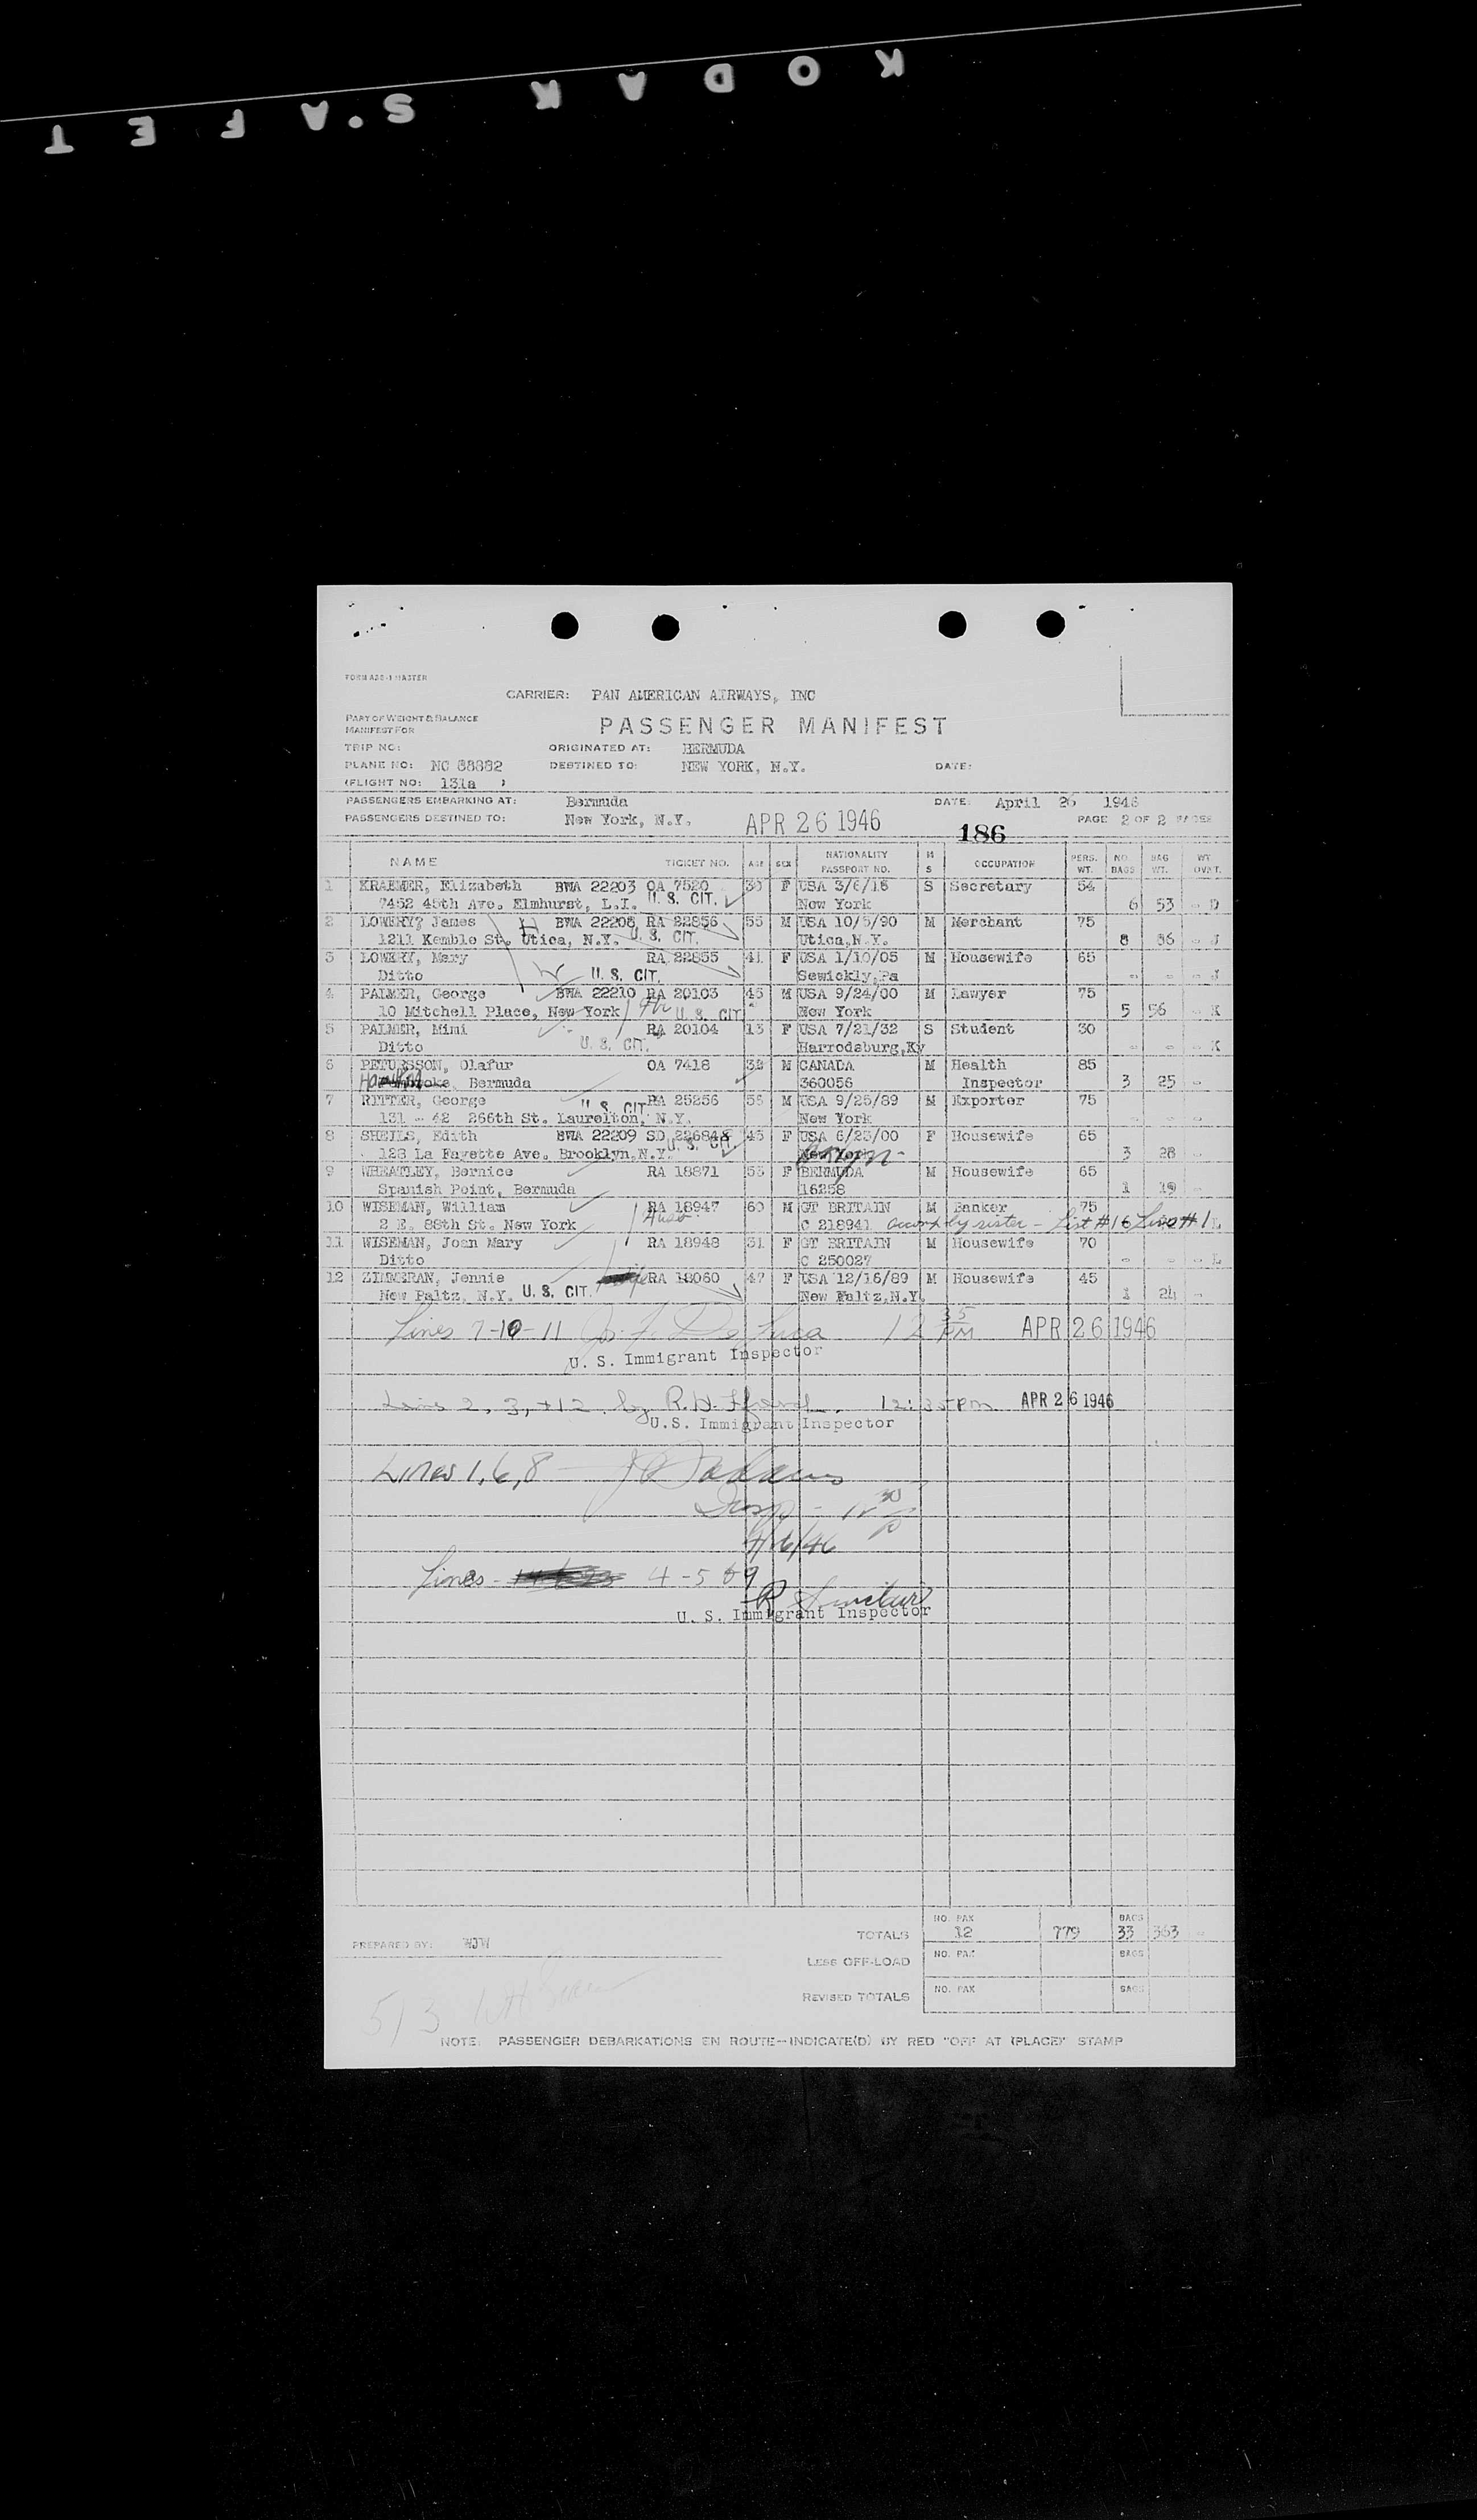 KODAK S'AFET
FORM ADS-1 MASTER
CARRIER: PAN AMERICAN AIRWAYS, INC
PART OF WEIGHT & BALANCE
MANIFEST FOR
PASSENGER MANIFEST
TRIP NO: ORIGINATED AT: BERMUDA
PLANE NO: NC 88882 DESTINED TO: NEW YORK, N.Y. DATE:
(FLIGHT NO: 131a )
PASSENGERS EMBARKING AT: Bermuda DATE: April 26 1946
PASSENGERS DESTINED TO: New York, N.Y. APR 26 1946 186 PAGE 2 OF 2 PAGES
NAME TICKET NO. AGE SEX NATIONALITY PASSPORT NO. M S OCCUPATION PERS. WT. NO. BAGS BAG WT. WT OVRT.
1 KRAEMER, Elizabeth BWA 22203 OA 7520 30 F USA 3/6/16 S Secretary 54
7452 45th Ave. Elmhurst, L.I. U. S. CIT. New York 6 53 - D
2 LOWERY, James H BWA 22208 RA 22856 55 M USA 10/5/90 M Merchant 75
1211 Kemble St. Utica, N.Y. U. S. CIT. Utica,N.Y. 8 86 - J
3 LOWERY, Mary RA 22855 41 F USA 1/10/05 M Housewife 65
Ditto W U. S. CIT. Sewickly,Pa - - - J
4 PALMER, George BWA 22210 RA 20103 45 M USA 9/24/00 M Lawyer 75
10 Mitchell Place, New York U. S. CIT New York 5 56 - K
5 PALMER, Mimi RA 20104 13 F USA 7/21/32 S Student 30
Ditto U. S. CIT. Harrodsburg,Ky - - - K
6 PETURSSON, Olafur OA 7418 38 M CANADA M Health 85
Bermuda 360056 Inspector 3 25 -
7 RITTER, George U. S. CIT RA 25256 56 M USA 9/25/89 M Exporter 75
131 - 42 266th St. Laurelton, N.Y. New York - - -
8 SHEILS, Edith BWA 22209 SD 226848 45 F USA 6/23/00 F Housewife 65
123 La Fayette Ave. Brooklyn,N.Y. U. S. CIT. New York 3 28 -
9 WHEATLEY, Bernice RA 18871 53 F BERMUDA M Housewife 65
Spanish Point, Bermuda 16258 1 19 -
10 WISEMAN, William RA 18947 60 M GT BRITAIN M Banker 75
2 E. 88th St. New York C 218941 by sister - List #16 Line #1 L
11 WISEMAN, Joan Mary RA 18948 31 F GT BRITAIN M Housewife 70
Ditto C 250027 - - - L
12 ZIMMERAN, Jennie RA 18060 47 F USA 12/16/89 M Housewife 45
New Paltz, N.Y. U. S. CIT. New Paltz,N.Y. 1 24 -
Lines 7-10-11 Jos. F. De Luca 12 35 PM APR 26 1946
U. S. Immigrant Inspector
Lines 2, 3, + 12 by R. H. 12:35 PM APR 26 1946
U.S. Immigrant Inspector
Lines 1, 6, 8
Insp - 12 30 P
4/26/46
Lines - 4-5 & 9
R Sinclair
U. S. Immigrant Inspector
NO. PAX BAGS
TOTALS 12 779 33 363 -
PREPARED BY: WJW
LESS OFF-LOAD NO. PAX BAGS
REVISED TOTALS NO. PAX BAGS
5/3
NOTE: PASSENGER DEBARKATIONS EN ROUTE--INDICATE(D) BY RED "OFF AT (PLACE)" STAMP